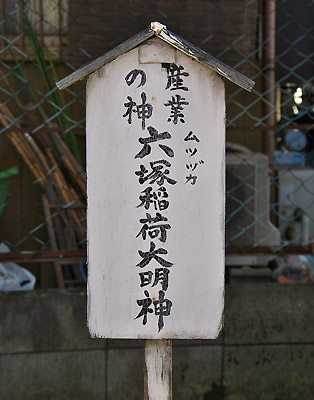 産業
の神
ムツヅカ
六塚稲荷大明神